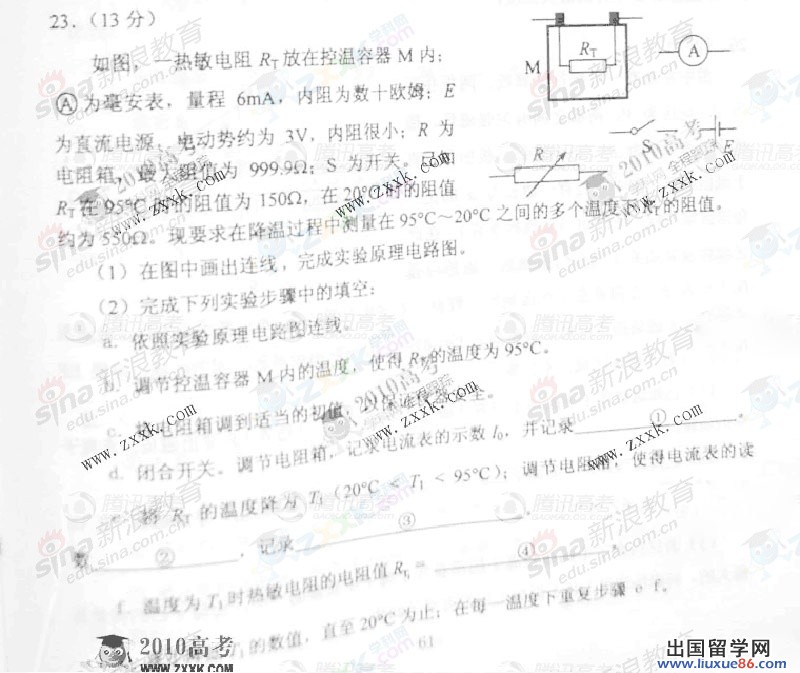 23.（13 分）
如图，一热敏电阻 RT 放在控温容器 M 内；
Ⓐ 为毫安表，量程 6mA，内阻为数十欧姆；E
为直流电源，电动势约为 3V，内阻很小；R 为
电阻箱，最大阻值为 999.9Ω；S 为开关。已知
RT 在 95°C 时的阻值为 150Ω，在 20°C 时的阻值
约为 550Ω。现要求在降温过程中测量在 95°C～20°C 之间的多个温度下 RT 的阻值。
M
RT
A
S
E
R
（1）在图中画出连线，完成实验原理电路图。
（2）完成下列实验步骤中的填空：
a. 依照实验原理电路图连线。
b. 调节控温容器 M 内的温度，使得 RT 的温度为 95°C。
c. 将电阻箱调到适当的初值，以保证仪器安全。
d. 闭合开关。调节电阻箱，记录电流表的示数 I0，并记录 ① 。
将 RT 的温度降为 T1（20°C < T1 < 95°C）；调节电阻箱，使得电流表的读
数 ② ，记录 ③ 。
f. 温度为 T1 时热敏电阻的电阻值 RT1 = ④ 。
T1 的数值，直至 20°C 为止；在每一温度下重复步骤 e f。
61
2010高考
www.zxxk.com
sina 新浪教育
edu.sina.com.cn
腾讯高考
学科网
出国留学网
www.liuxue86.com